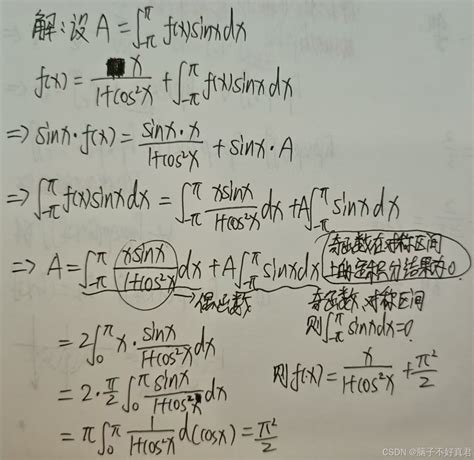 解:设 A = ∫_{-π}^{π} f(x)sinxdx
f(x) = x/(1+cos²x) + ∫_{-π}^{π} f(x)sinxdx
⇒ sinx·f(x) = sinx·x/(1+cos²x) + sinx·A
⇒ ∫_{-π}^{π} f(x)sinxdx = ∫_{-π}^{π} xsinx/(1+cos²x) dx + A∫_{-π}^{π} sinxdx
⇒ A = ∫_{-π}^{π} xsinx/(1+cos²x) dx + A∫_{-π}^{π} sinxdx
奇函数在对称区间
上的定积分结果为0
→偶函数
奇函数,对称区间
则∫_{-π}^{π} sinxdx=0
= 2∫_0^π x·sinx/(1+cos²x) dx
= 2·π/2 ∫_0^π sinx/(1+cos²x) dx
= π∫_0^π 1/(1+cos²x) d(cosx) = π²/2
则f(x) = x/(1+cos²x) + π²/2
CSDN @脑子不好真君